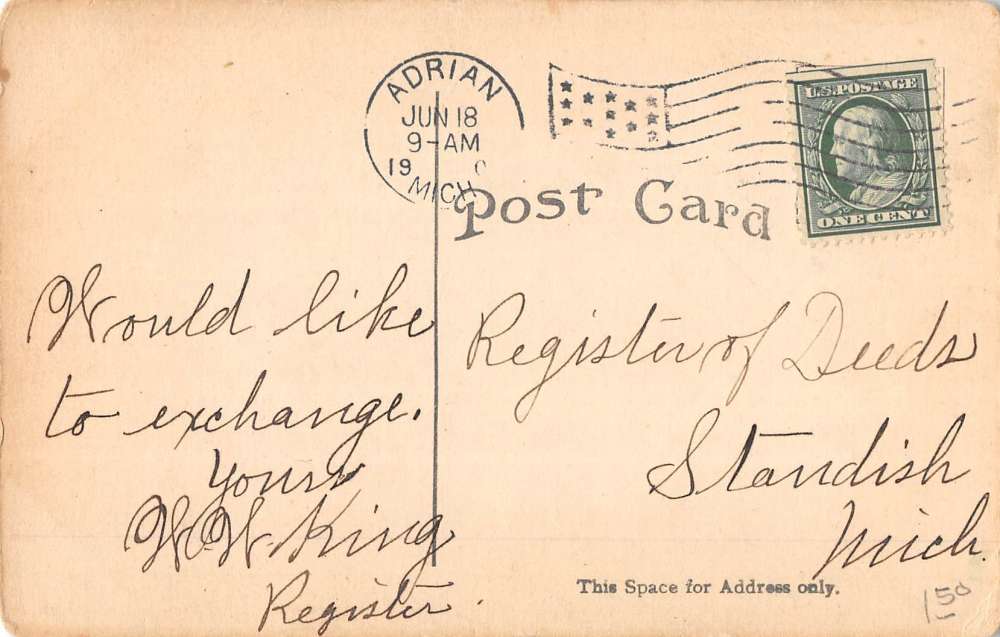 ADRIAN
JUN 18
9-AM
19 0
MICH.
U.S. POSTAGE
ONE CENT
Post Card
Would like
to exchange.
Yours
W.W. King
Register.
Register of Deeds
Standish
Mich.
This Space for Address only.
1 50